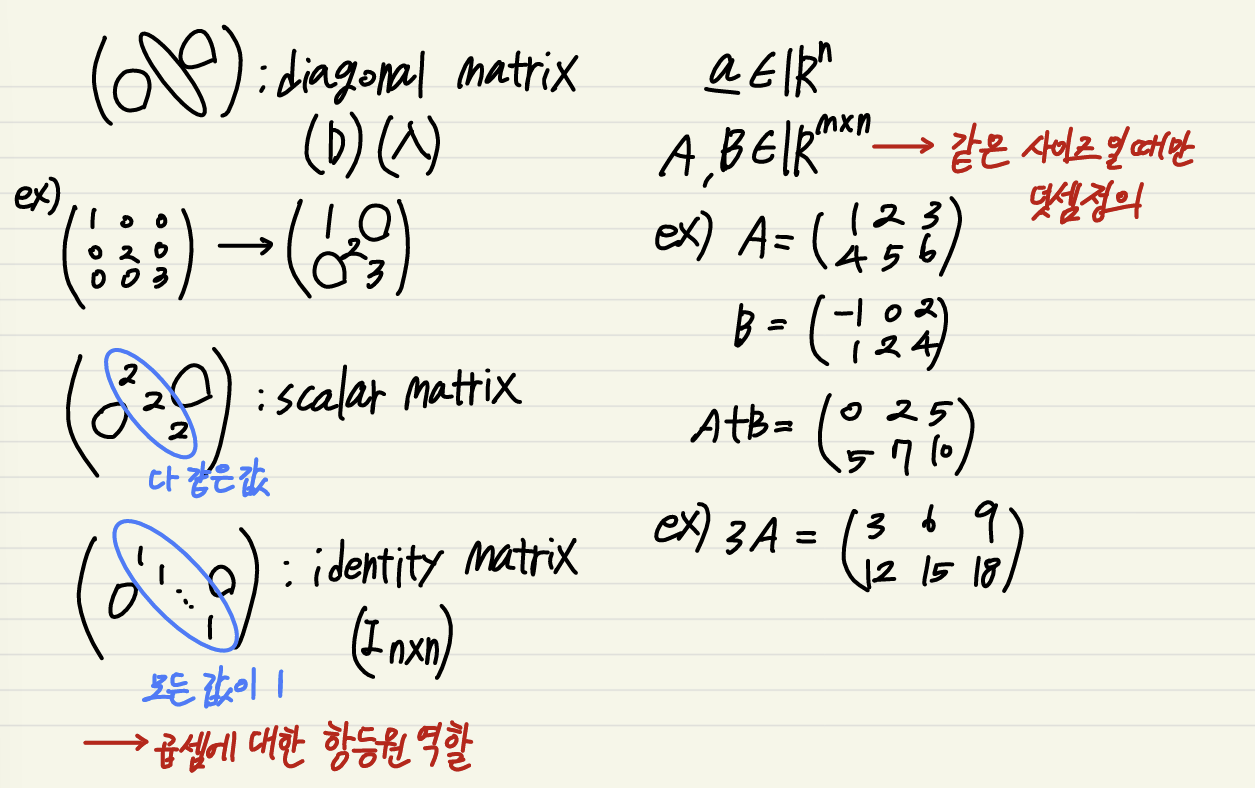 (0\0) : diagonal matrix
(D) (Λ)
ex)
(1 0 0
0 2 0
0 0 3) → (1 0
2
0 3)
(2 0
2
0 2) : scalar matrix
다 같은 값
(1
1
0 ⋱ 0
1) : identity matrix
(I n×n)
모든 값이 1
→ 곱셈에 대한 항등원 역할
a ∈ ℝⁿ
A, B ∈ ℝᵐˣⁿ → 같은 사이즈일때만
덧셈정의
ex) A = (1 2 3
4 5 6)
B = (-1 0 2
1 2 4)
A+B = (0 2 5
5 7 10)
ex) 3A = (3 6 9
12 15 18)